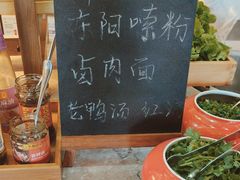 东阳嗦粉
卤肉面
老鸭汤 红